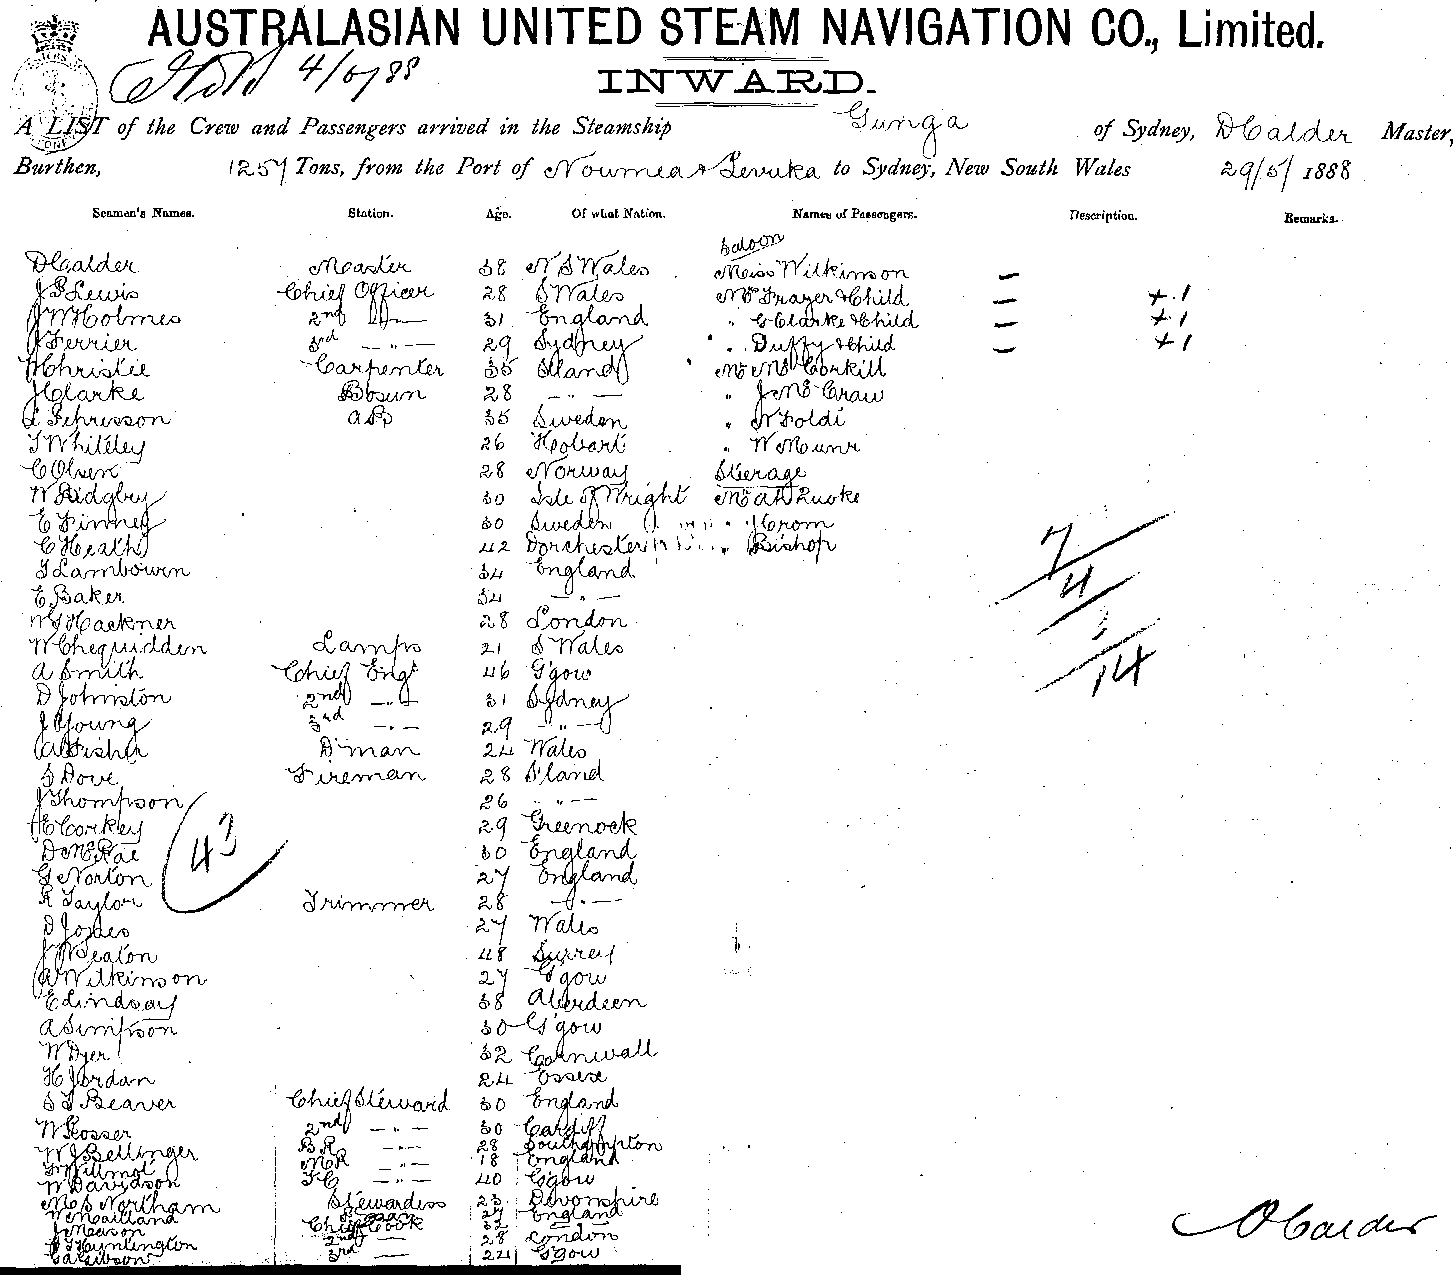 AUSTRALASIAN UNITED STEAM NAVIGATION CO., Limited.
INWARD.
A LIST of the Crew and Passengers arrived in the Steamship Gunga of Sydney, D Calder Master,
Burthen, 1257 Tons, from the Port of Noumea & Levuka to Sydney, New South Wales 29/5/ 1888
Seamen's Names. Station. Age. Of what Nation. Names of Passengers. Description. Remarks.
Saloon
D Calder Master 38 N S Wales Miss Wilkinson —
Lewis Chief Officer 28 S Wales Mrs Frazer & Child — + 1
J W Holmes 2nd 31 England " G Clarke & Child — + 1
J Ferrier 3rd — " — 29 Sydney " Duffy & Child — + 1
Christie Carpenter 35 S'land Mr Mc Corkill
J Clarke Bosun 28 — " — " J Mc Craw
AB 35 Sweden " N Foldi
T Whitley 26 Hobart " W Munr
C Olsen 28 Norway Steerage
W Ridgby 30 Isle of Wright Mr Ah
E Finney 30 Sweden " J Crom
C Heath 42 Dorchester " Bishop
Lambowen 34 England
E Baker 34 — " —
Hackner 28 London
W Chequidden Lamps 21 S Wales
A Smith Chief Engr 46 G'gow
D Johnston 2nd — " — 31 Sydney
J Young 3rd — " — 29 — " —
A Fisher D'man 24 Wales
S Dove Fireman 28 S'land
J Thompson 26 " " —
E Corkey 29 Greenock
D McRae 30 England
G Norton 27 England
R Taylor Trimmer 28 — " —
D Jones 27 Wales
J W Seaton 48 Surrey
A Wilkinson 27 G'gow
E Lindsay 38 Aberdeen
A Simpson 30 G'gow
W Dyer 32 Cornwall
H Jordan 24 Essex
S T Beaver Chief Steward 30 England
W Rosser 2nd — " — 30 Cardiff
W J Bellinger B R — " — 28 Southampton
Willmot M R — " — 18 England
W Davidson F C — " — 40 G'gow
Mrs Northam Stewardess 23 Devonshire
W Maitland 27 England
J Mason Chief Cook 32
Huntington 2nd — 28 London
Gibson 3rd — 24 G'gow
43
7
4
3
14
D Calder